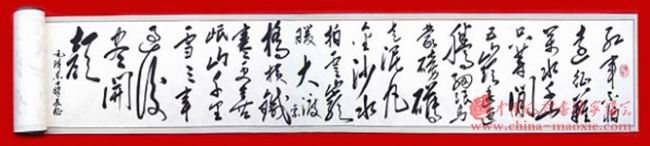 红军不怕
远征难
万水千山
只等闲
五岭逶迤
腾细浪乌
蒙磅礴
走泥丸
金沙水
拍云崖
暖大渡
桥横铁
索寒更喜
岷山千里
雪三军
过后
尽开
颜
www.china-maoxie.com